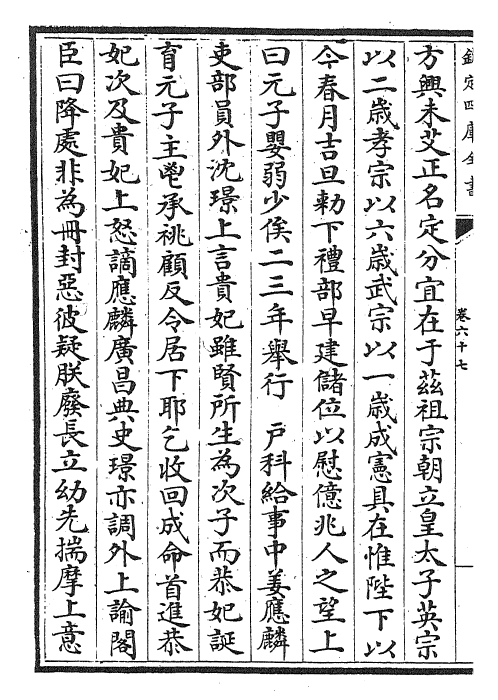 欽定四庫全書
卷六十七
方興未艾正名定分宜在于茲祖宗朝立皇太子英宗
以二歲孝宗以六歲武宗以一歲成憲具在惟陛下以
今春月吉旦勅下禮部早建儲位以慰億兆人之望上
曰元子嬰弱少俟二三年舉行　戶科給事中姜應麟
吏部員外沈璟上言貴妃雖賢所生為次子而恭妃誕
育元子主鬯承祧顧反令居下耶乞收回成命首進恭
妃次及貴妃上怒謫應麟廣昌典史璟亦調外上諭閣
臣曰降處非為冊封惡彼疑朕廢長立幼先揣摩上意